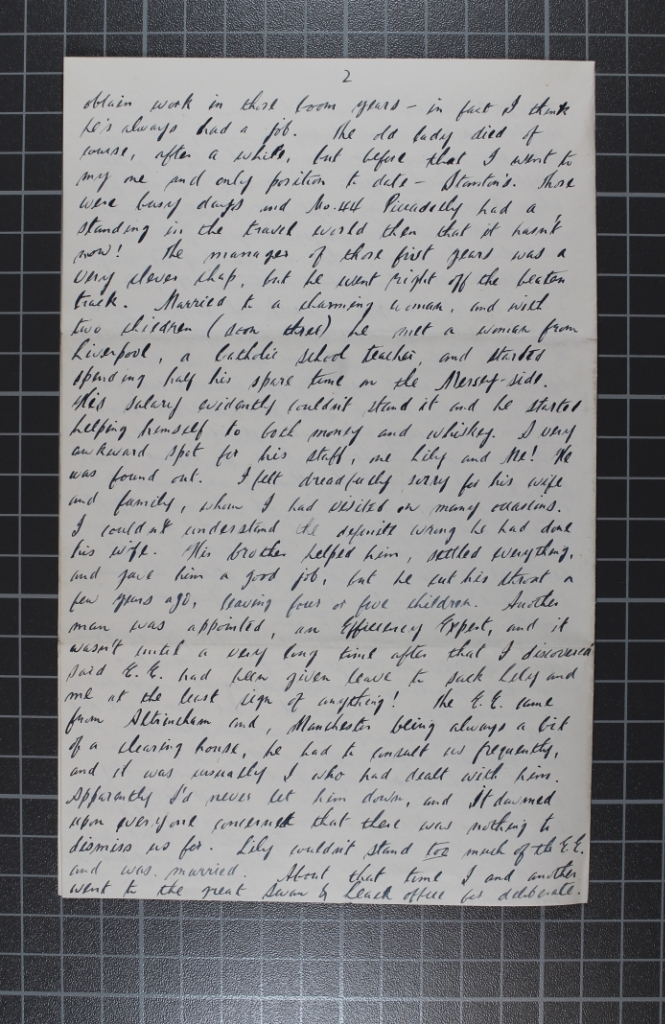 2
obtain work in those boom years – in fact I think
he's always had a job. The old lady died of
course, after a while, but before that I went to
my one and only position to date – Stanton's. Those
were busy days and No. 44 Piccadilly had a
standing in the travel world then that it hasn't
now! The manager of those first years was a
very clever chap, but he went right off the beaten
track. Married to a charming woman, and with
two children (soon three) he met a woman from
Liverpool, a Catholic school teacher, and started
spending half his spare time on the Mersey-side.
His salary evidently couldn't stand it and he started
helping himself to both money and whiskey. A very
awkward spot for his staff, one Lily and Me! He
was found out. I felt dreadfully sorry for his wife
and family, whom I had visited on many occasions.
I couldn't understand the definite wrong he had done
his wife. His brother helped him, settled everything,
and gave him a good job, but he cut his throat a
few years ago, leaving four or five children. Another
man was appointed, an Efficiency Expert, and it
wasn't until a very long time after that I discovered
said E.E. had been given leave to sack Lily and
me at the least sign of anything! The E.E. came
from Altrincham and, Manchester being always a bit
of a clearing house, he had to consult us frequently,
and it was usually I who had dealt with him.
Apparently I'd never let him down, and It dawned
upon everyone concerned that there was nothing to
dismiss us for. Lily couldn't stand too much of the E.E.
and was married. About that time I and another
went to the great Swan & Leach office as deliberate.